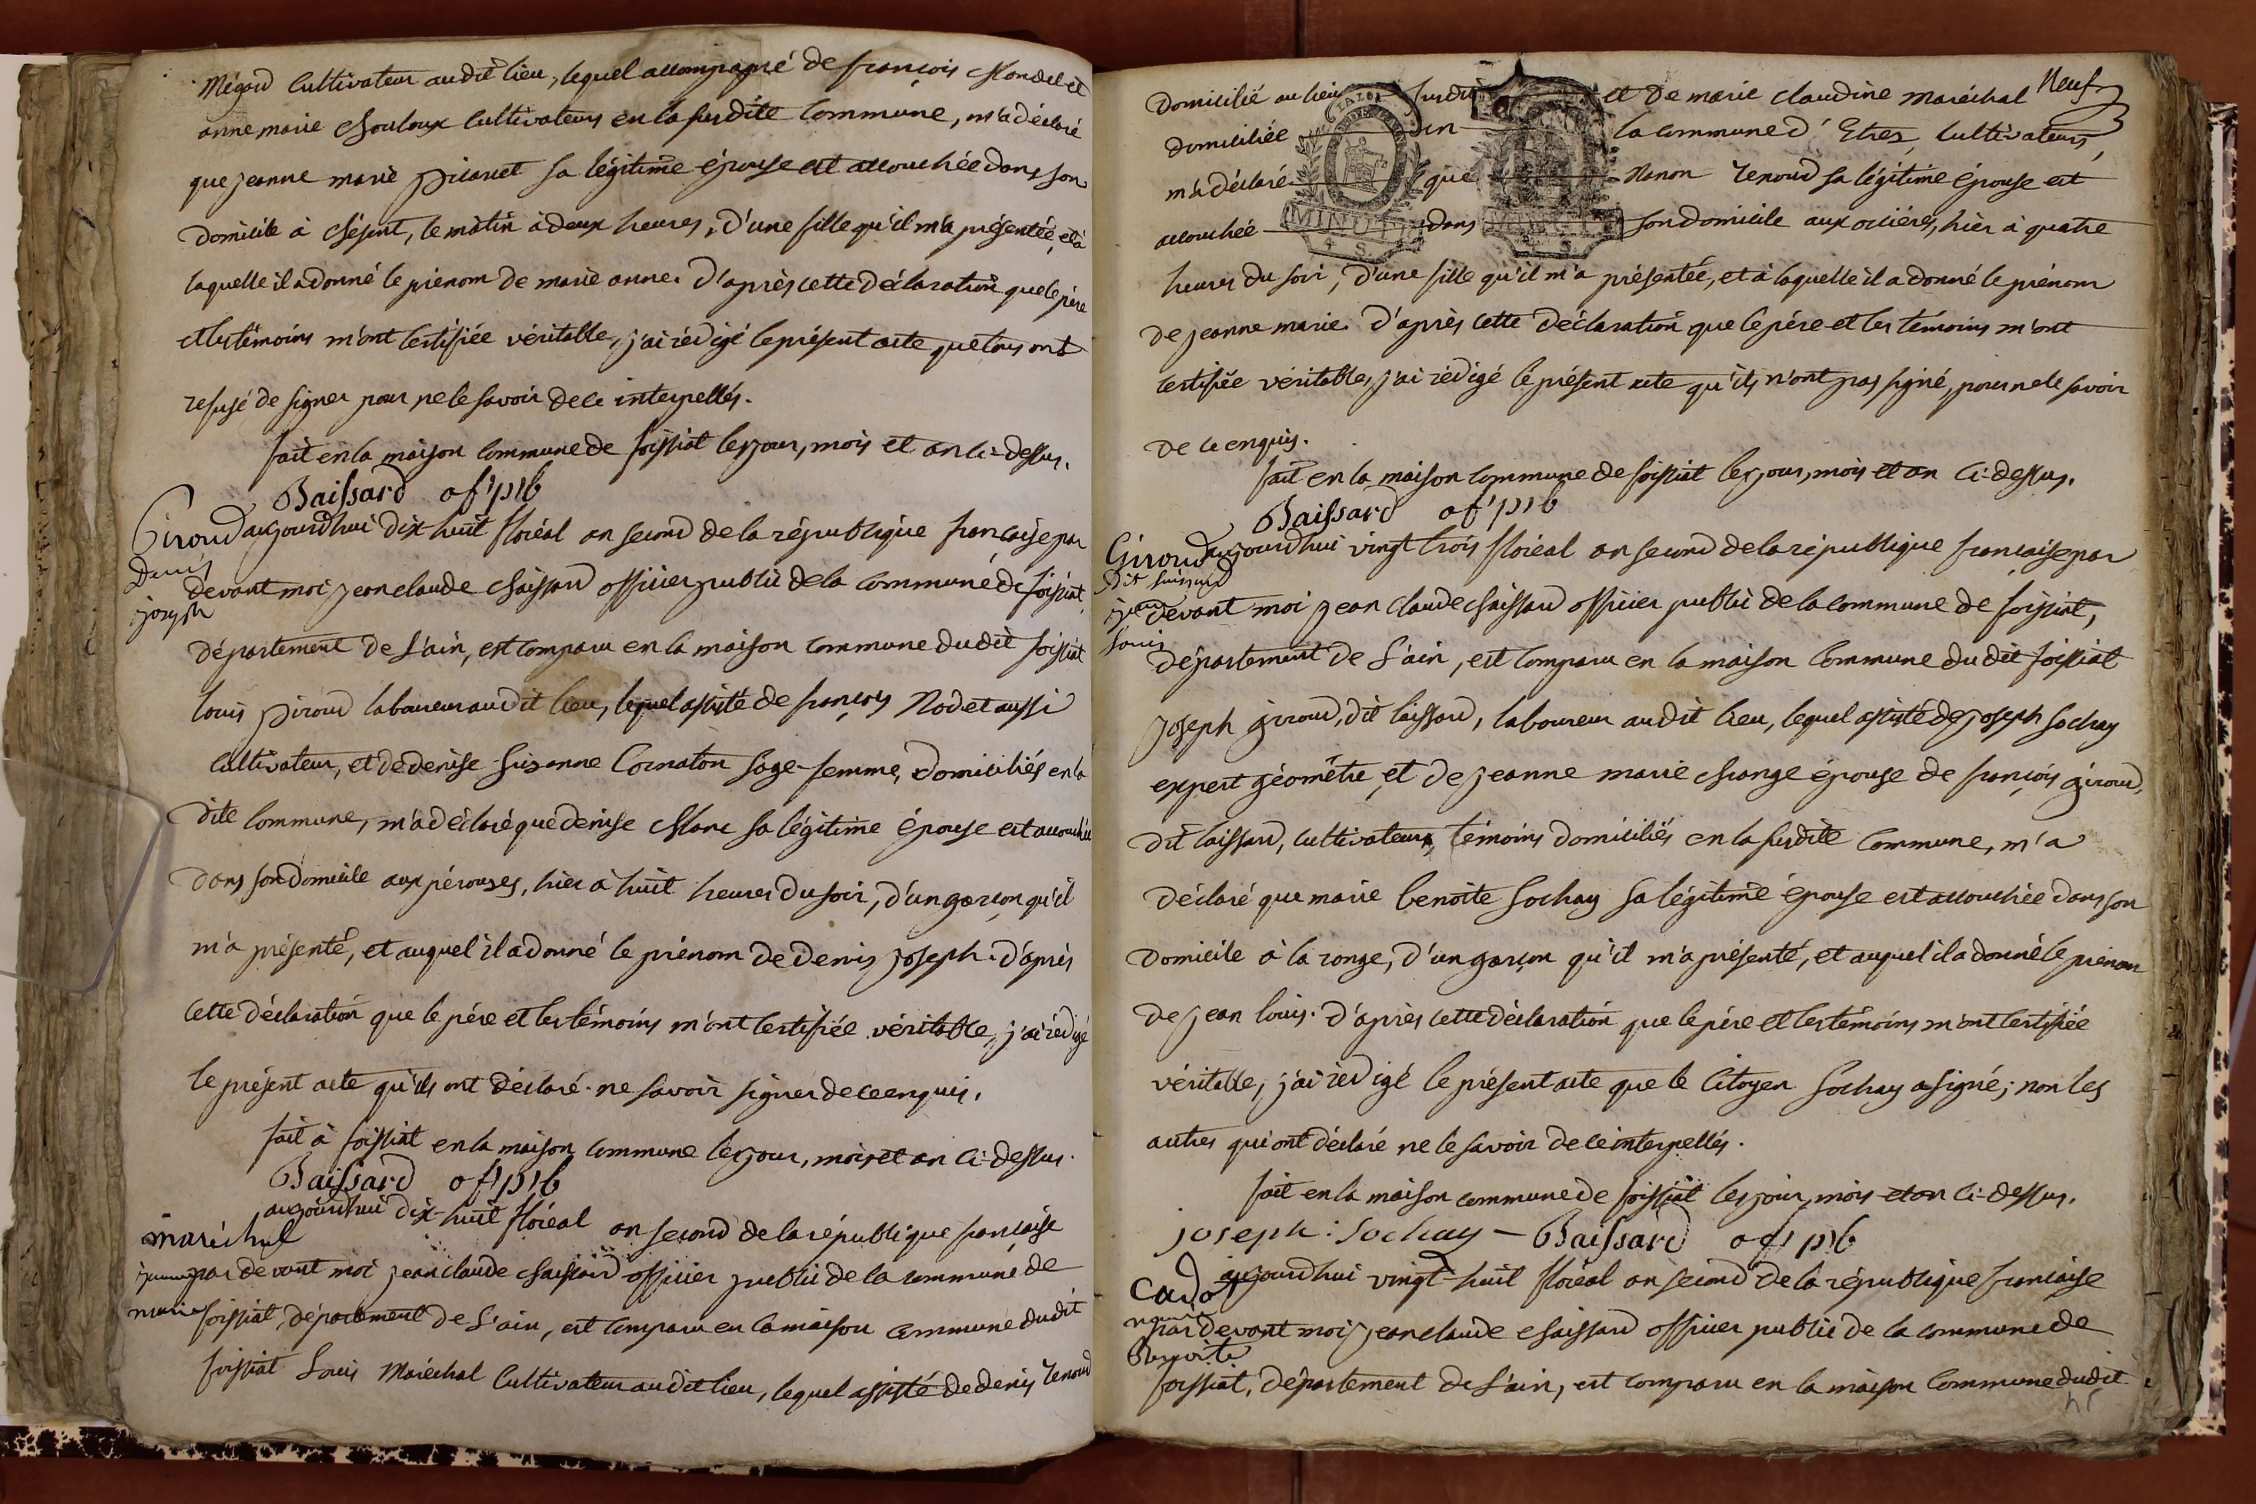 Mégard Cultivateur audit lieu, lequel accompagné de françois chondel et
anne marie chouloux Cultivateurs en la susdite Commune, m'a déclaré
que jeanne marie picaret sa légitime épouse est accouchée dans son
Domicile à chésent, le matin à deux heures, d'une fille qu'il m'a présentée, et à
laquelle il a donné le prénom de marie anne. D'après cette déclaration que le père
et les témoins m'ont certifiée véritable, j'ai rédigé le présent acte que tous ont
refusé de signer pour ne le savoir de ce interpellés.
fait en la maison Commune de foissiat les jour, mois et an ci-dessus.
Baissard of pb
Giroud
Denis
joseph
aujourdhui dix-huit floréal an second de la république française par
devant moi jean claude chaissard officier public de la Commune de foissiat,
département de L'ain, est comparu en la maison commune dudit foissiat
louis piroud laboureur audit lieu, lequel assisté de françois Nodet aussi
Cultivateur, et de denise suzanne Cornaton sage-femme, domiciliés en la
dite Commune, m'a déclaré que denise chlanc sa légitime épouse est accouchée
dans son domicile aux pérouses, hier à huit heures du soir, d'un garçon qu'il
m'a présenté, et auquel il a donné le prénom de denis joseph. d'après
cette déclaration que le père et les témoins m'ont certifiée véritable, j'ai rédigé
le présent acte qu'ils ont déclaré ne savoir signer de ce enquis.
fait à foissiat en la maison commune les jour, mois et an ci-dessus.
Baissard of pb
maréchal
jeanne
marie
aujourdhui dix-huit floréal an second de la république française
par devant moi jean claude chaissard officier public de la commune de
foissiat, département de L'ain, est comparu en la maison commune dudit
foissiat Louis Maréchal Cultivateur audit lieu, lequel assisté de denis renoud
Neuf
Domicilié au lieu susdit et de marie claudine maréchal
domiciliée en la commune d'Etrez, Cultivateurs,
m'a déclaré que Nanon renoud sa légitime épouse est
accouchée dans son domicile aux ocières, hier à quatre
MINUTE
4 S
heures du soir, d'une fille qu'il m'a présentée, et à laquelle il a donné le prénom
de jeanne marie. D'après cette déclaration que le père et les témoins m'ont
certifiée véritable, j'ai rédigé le présent acte qu'ils n'ont pas signé, pour ne le savoir
de ce enquis.
fait en la maison commune de foissiat les jour, mois et an ci-dessus.
Baissard of pb
Giroud
jean
louis
aujourdhui vingt trois floréal an second de la république française par
devant moi jean claude chaissard officier public de la commune de foissiat,
département de L'ain, est comparu en la maison commune du dit foissiat
joseph giroud, dit laissard, laboureur audit lieu, lequel assisté de joseph sochay
expert géomètre, et de jeanne marie change épouse de françois giroud,
dit laissard, cultivateurs, témoins domiciliés en la susdite Commune, m'a
déclaré que marie benoite sochay sa légitime épouse est accouchée dans son
domicile à la ronge, d'un garçon qu'il m'a présenté, et auquel il a donné le prénom
de jean louis. d'après cette déclaration que le père et les témoins m'ont certifiée
véritable, j'ai rédigé le présent acte que le Citoyen sochay a signé; non les
autres qui ont déclaré ne le savoir de ce interpellés.
fait en la maison commune de foissiat les jour, mois et an ci-dessus.
joseph : sochay — Baissard of pb
Cadot
marie
Benoite
aujourdhui vingt-huit floréal an second de la république française
par devant moi jean claude chaissard officier public de la commune de
foissiat, département de L'ain, est comparu en la maison commune dudit